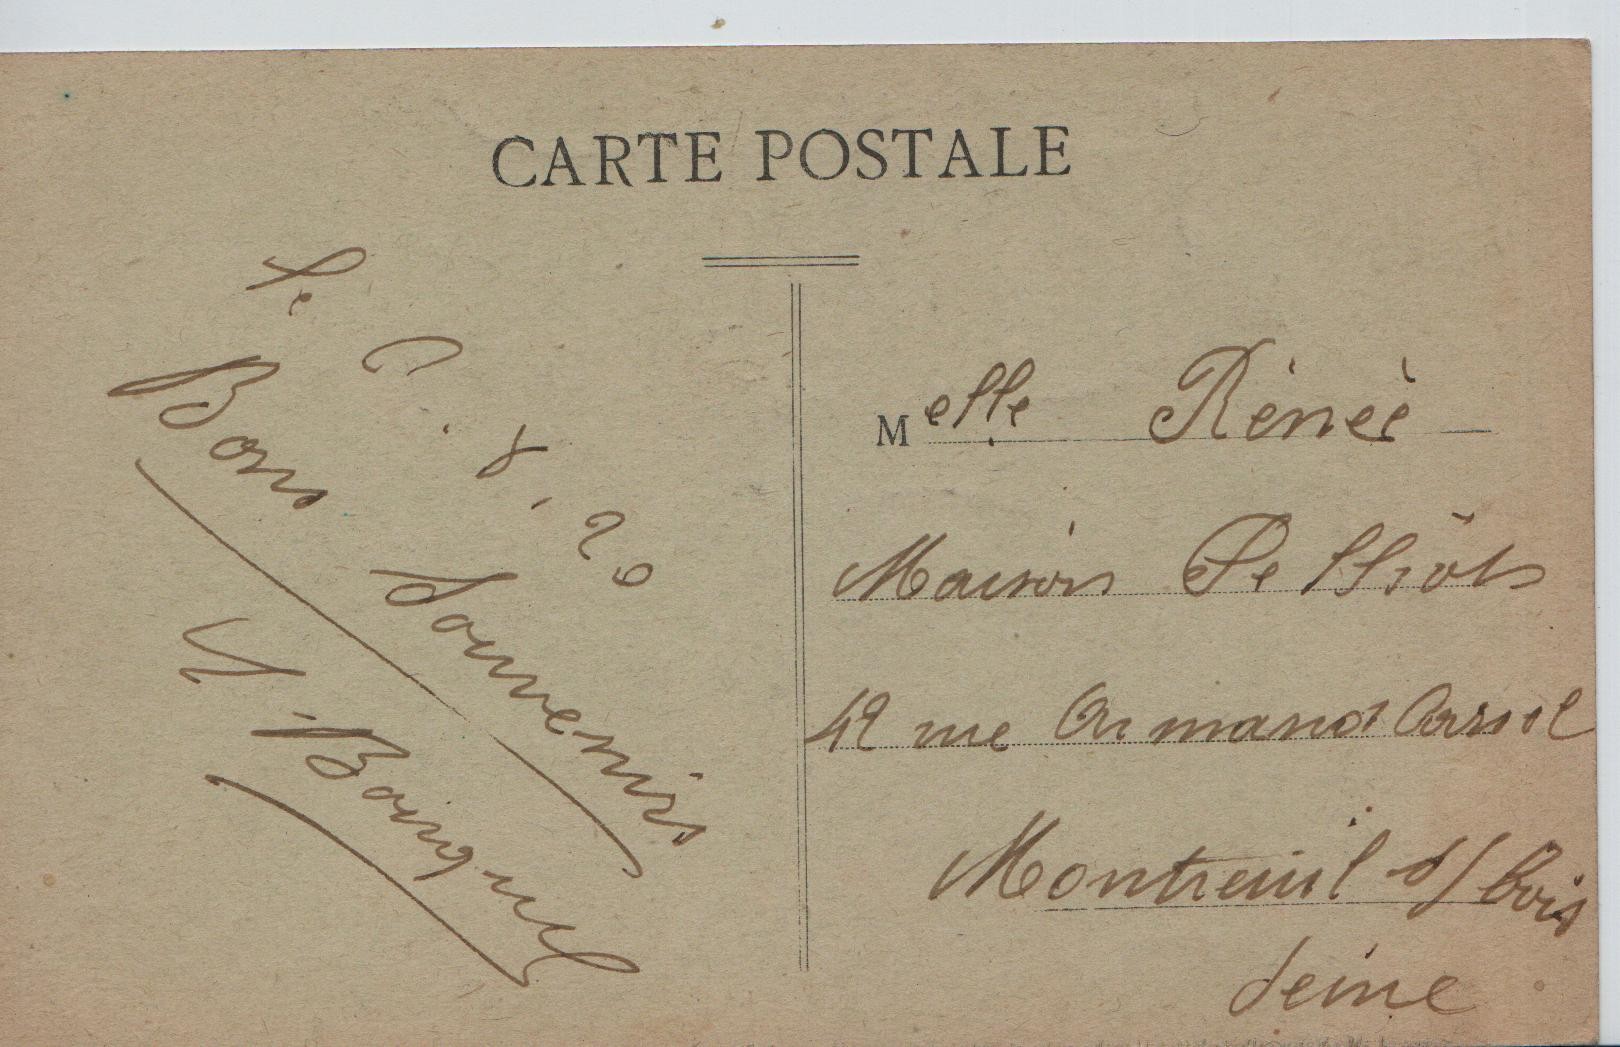 CARTE POSTALE
Le
8. 20
Bons Souvenirs
Melle Rénée
Maison
42 rue Armand Carrel
Montreuil s/ bois
Seine